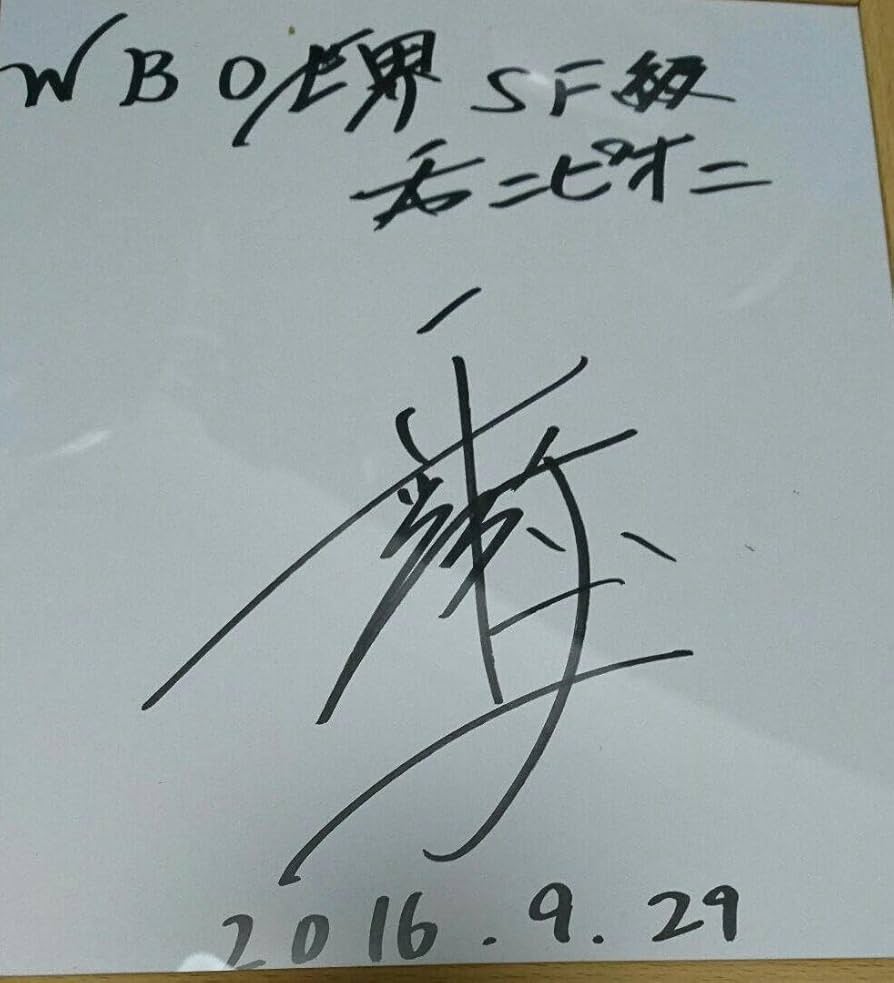 WBO世界 SF級
チャンピオン
2016.9.29